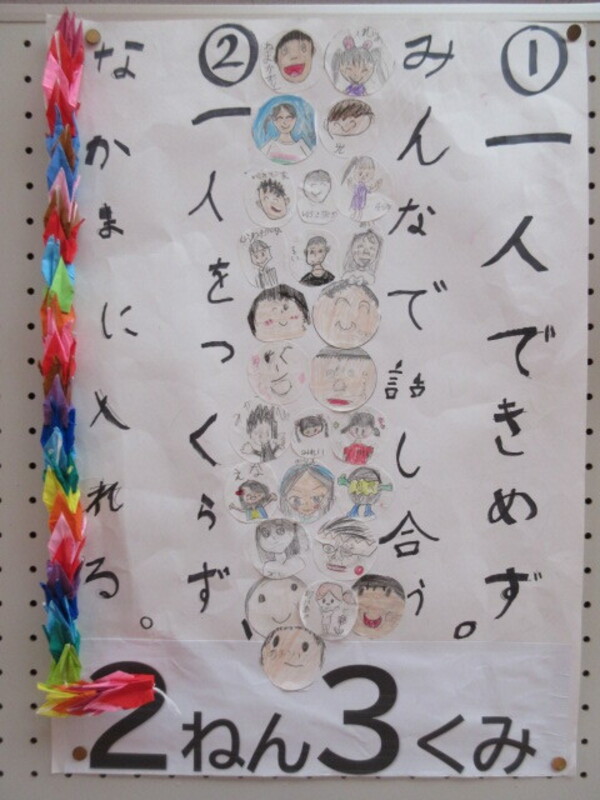 ①一人できめず
みんなで話し合う。
②一人をつくらず、
なかまに入れる。
2ねん3くみ